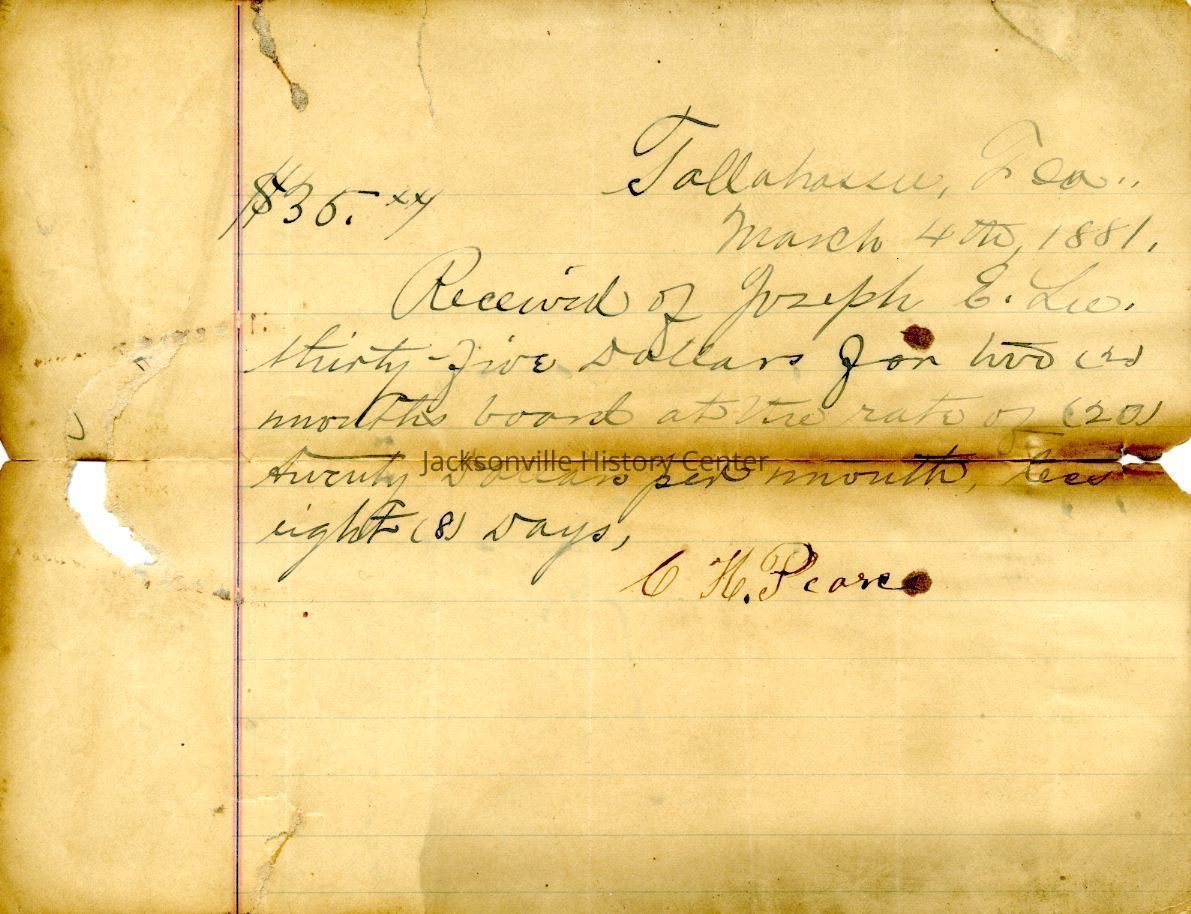 Tallahassee, Fla..
$35. xx/
March 4th, 1881.
Received of Joseph E. Lee.
thirty-five Dollars for two (2)
months board at the rate of (20)
Jacksonville History Center
twenty Dollars per month, less
eight (8) Days,
C. H. Pearce